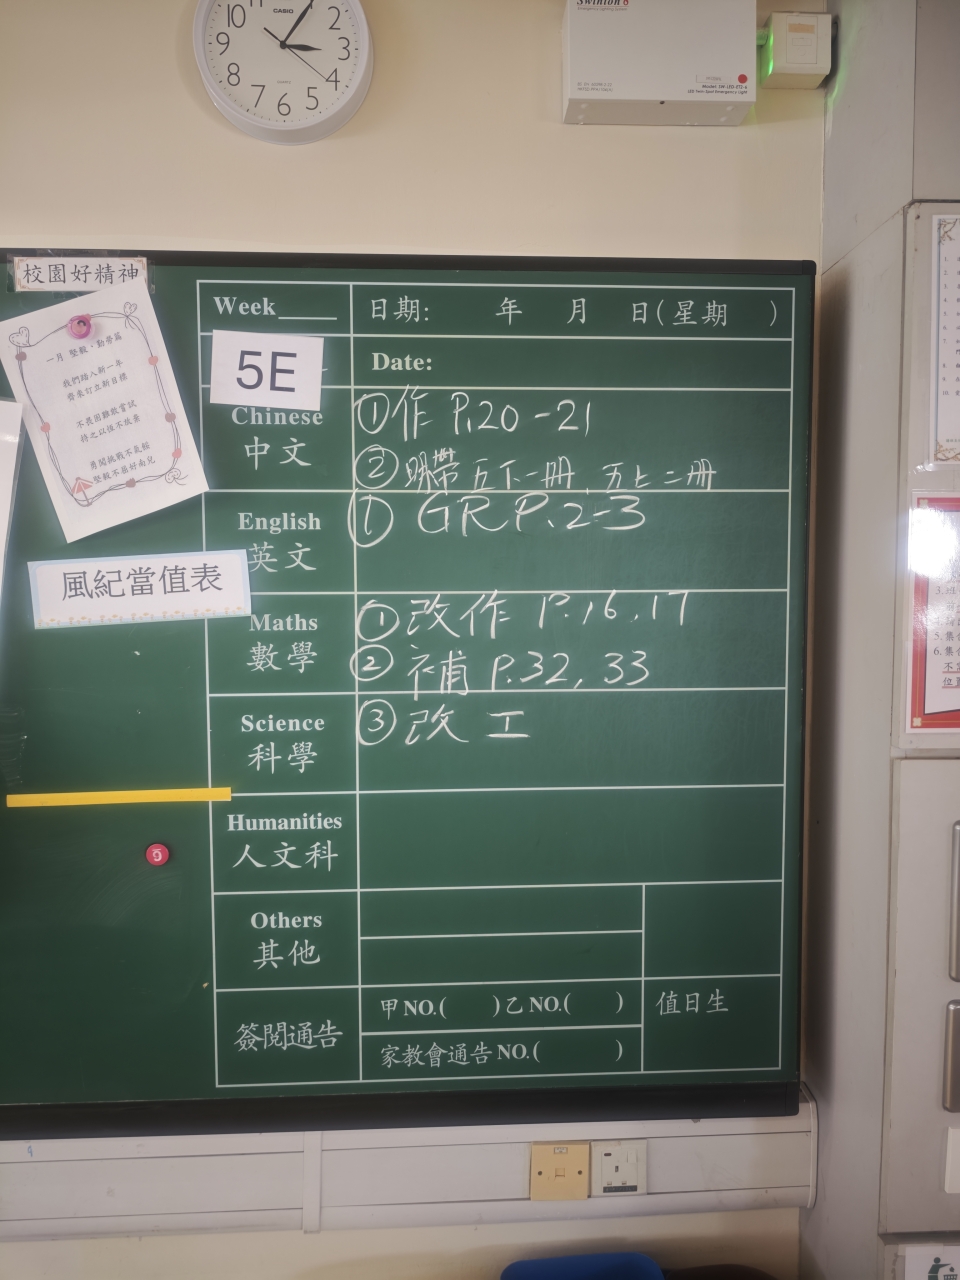 11
1
10
2
CASIO
9
3
8
4
7
6
5
Swinton
Emergency Lighting System
Model: SW-LED-ST2-6
LED Twin Spot Emergency Light
校園好精神
一月 堅毅・勤學篇
我們踏入新一年
齊來訂立新目標
不畏困難敢嘗試
持之以恆不放棄
勇闖挑戰不氣餒
堅毅不屈好南兒
風紀當值表
Week
日期: 年 月 日(星期 )
5E
Date:
Chinese
中文
①作 P.20-21
②明帶五下一冊,五上二冊
English
英文
① GR P.2-3
Maths
數學
①改作 P.16,17
②補 P.32, 33
Science
科學
③改 工
Humanities
人文科
Others
其他
簽閱通告
甲NO.( )乙NO.( )
家教會通告NO.( )
值日生